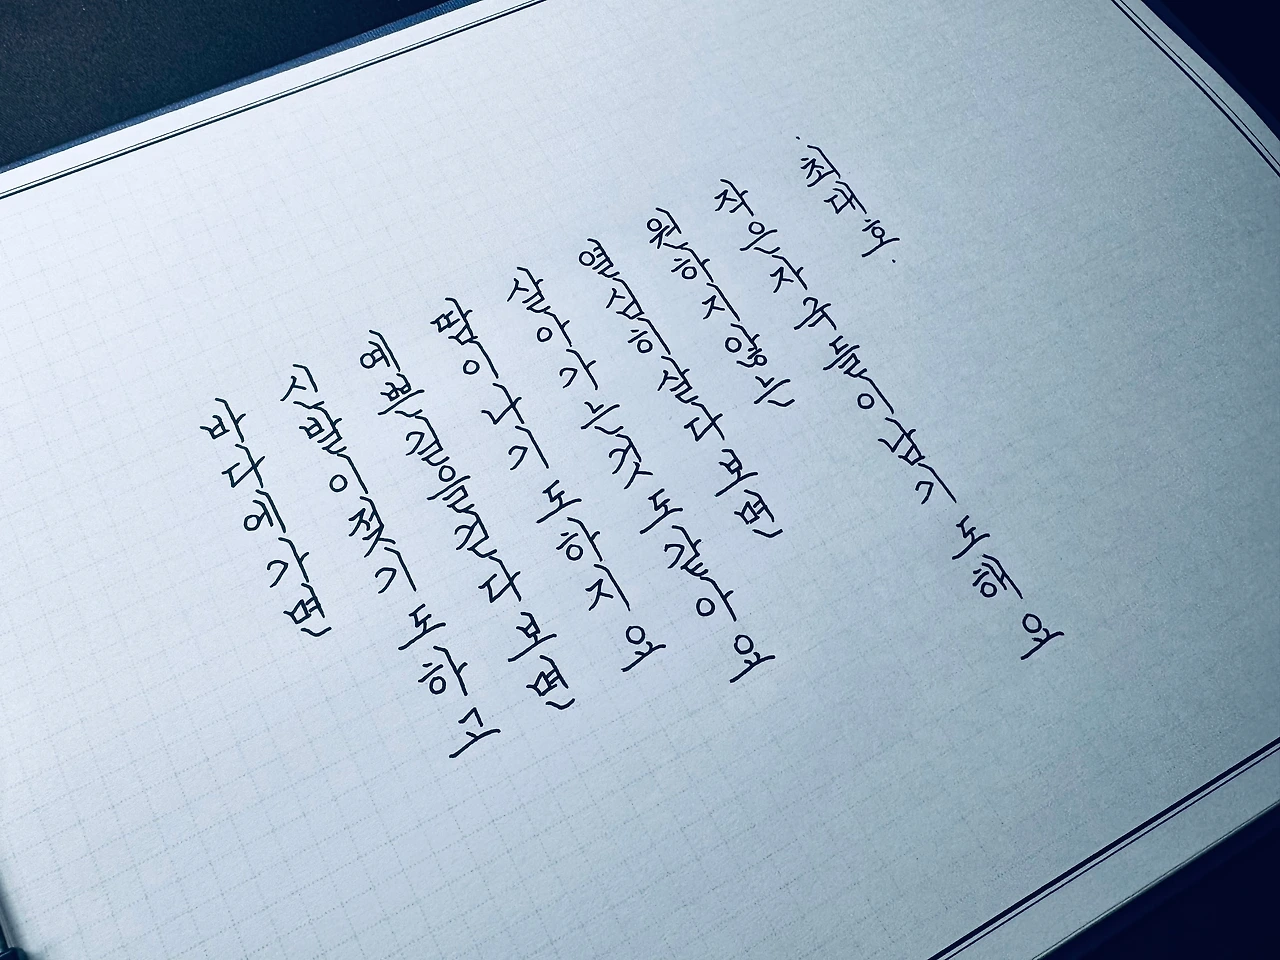 바다에 가면
신발이 젖기도 하고
예쁜 길을 걷다 보면
땀이 나기도 하지요
살아가는 것도 같아요
열심히 살다 보면
원하지 않는
작은 자국들이 남기도 해요
·최대호·